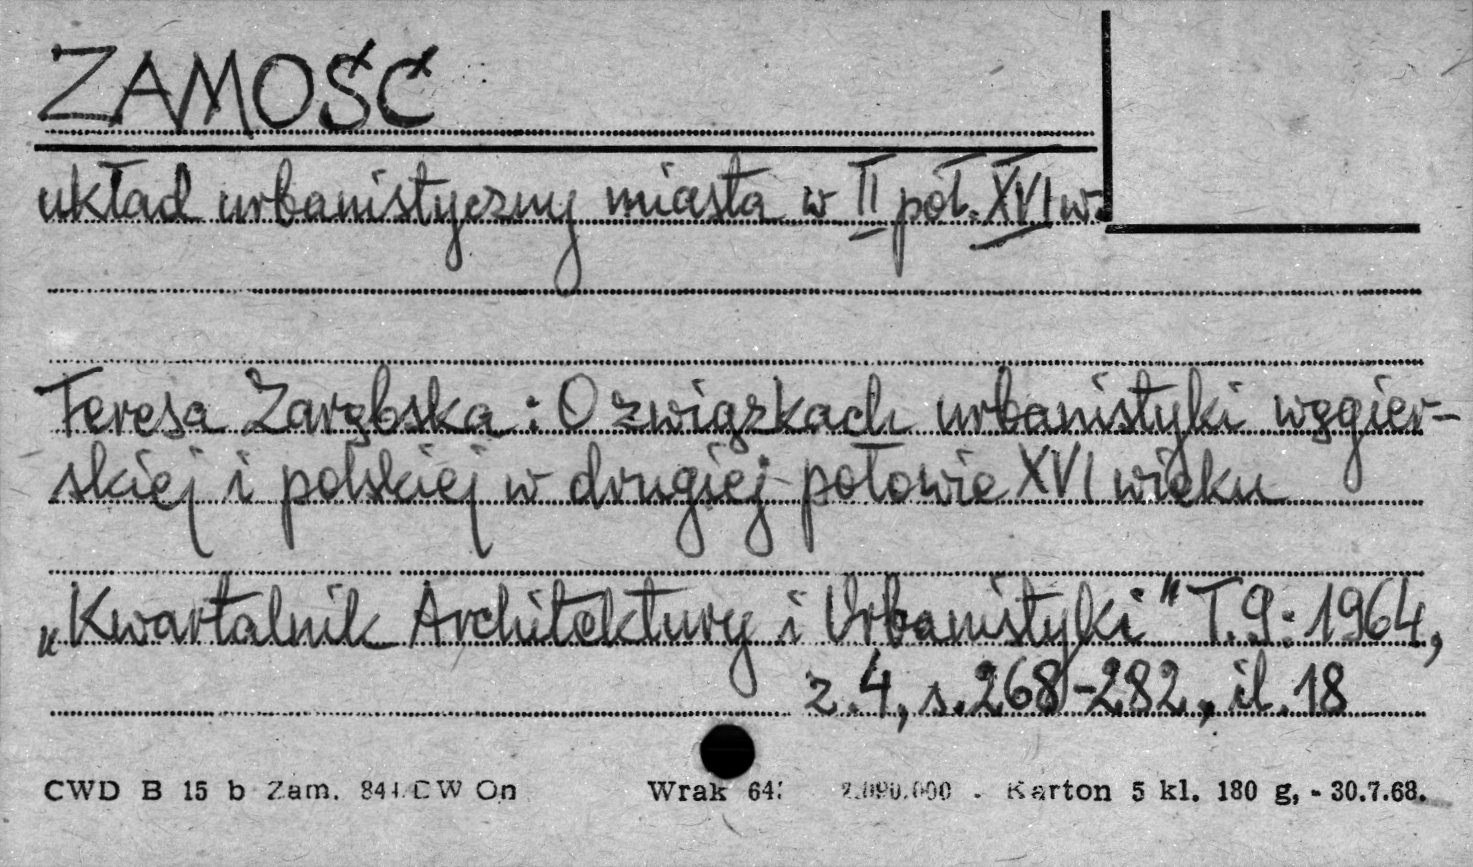 ZAMOŚĆ
układ urbanistyczny miasta w II poł. XVI w.
Teresa Zarębska: O związkach urbanistyki węgier-
skiej i polskiej w drugiej połowie XVI wieku
„Kwartalnik Architektury i Urbanistyki" T. 9: 1964,
z. 4, s. 268-282, il. 18
CWD B 15 b Zam. CW On Wrak Karton 5 kl. 180 g, - 30.7.68.